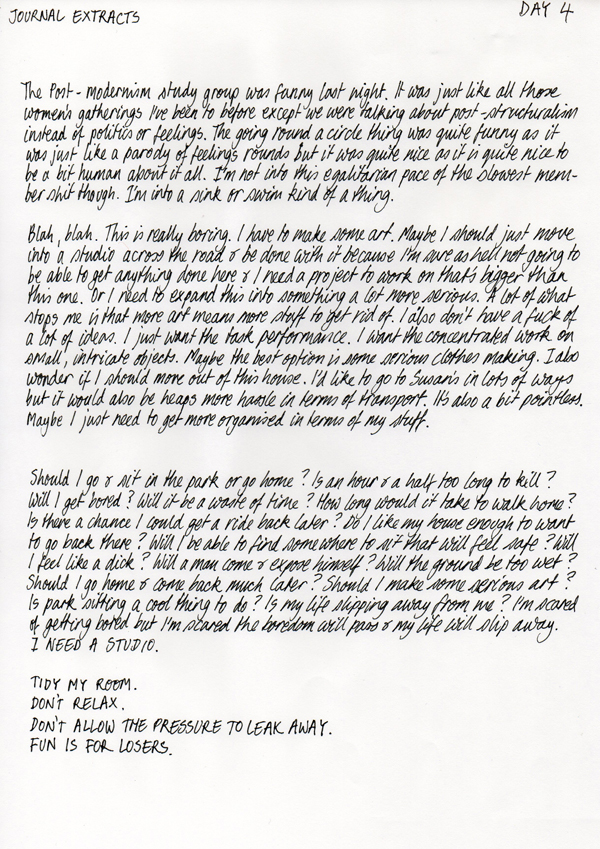 JOURNAL EXTRACTS
DAY 4
The Post-modernism study group was funny last night. It was just like all those
women's gatherings I've been to before except we were talking about post-structuralism
instead of politics or feelings. The going round a circle thing was quite funny as it
was just like a parody of feelings rounds but it was quite nice as it is quite nice to
be a bit human about it all. I'm not into this egalitarian pace of the slowest mem-
ber shit though. I'm into a sink or swim kind of a thing.
Blah, blah. This is really boring. I have to make some art. Maybe I should just move
into a studio across the road & be done with it because I'm sure as hell not going to
be able to get anything done here & I need a project to work on that's bigger than
this one. Or I need to expand this into something a lot more serious. A lot of what
stops me is that more art means more stuff to get rid of. I also don't have a fuck of
a lot of ideas. I just want the task performance. I want the concentrated work on
small, intricate objects. Maybe the best option is some serious clothes making. I also
wonder if I should move out of this house. I'd like to go to Susan's in lots of ways
but it would also be heaps more hassle in terms of transport. It's also a bit pointless.
Maybe I just need to get more organised in terms of my stuff.
Should I go & sit in the park or go home? Is an hour & a half too long to kill?
Will I get bored? Will it be a waste of time? How long would it take to walk home?
Is there a chance I could get a ride back later? Do I like my house enough to want
to go back there? Will I be able to find somewhere to sit that will feel safe? Will
I feel like a dick? Will a man come & expose himself? Will the ground be too wet?
Should I go home & come back much later? Should I make some serious art?
Is park sitting a cool thing to do? Is my life slipping away from me? I'm scared
of getting bored but I'm scared the boredom will pass & my life will slip away.
I NEED A STUDIO.
TIDY MY ROOM.
DON'T RELAX.
DON'T ALLOW THE PRESSURE TO LEAK AWAY.
FUN IS FOR LOSERS.